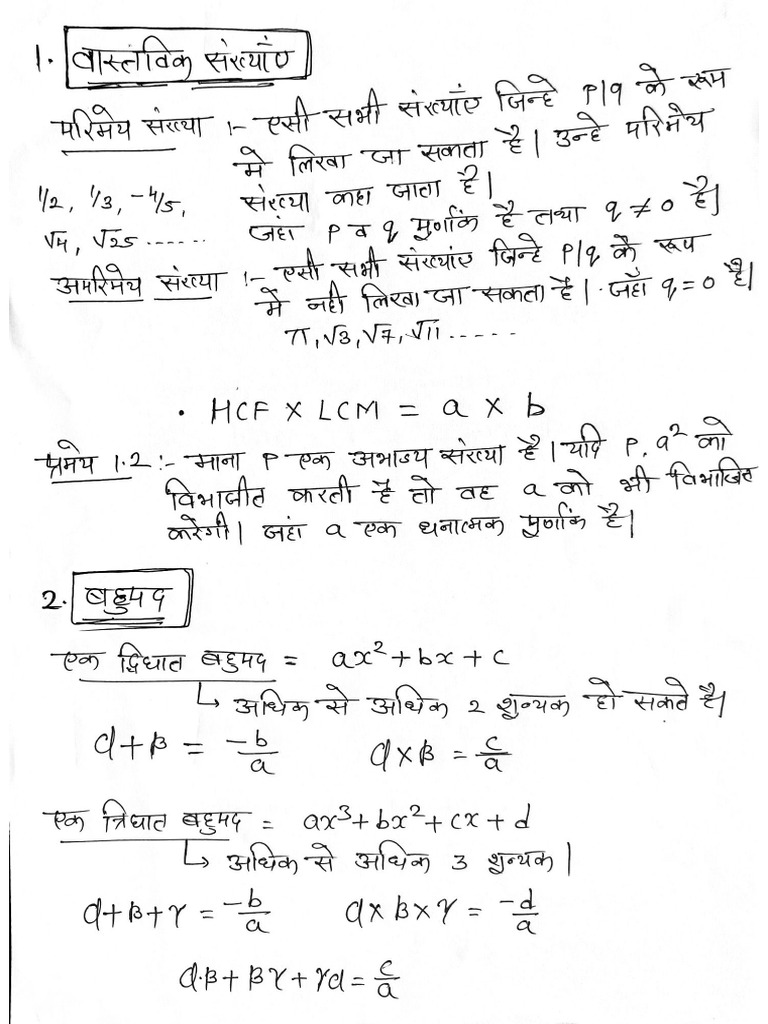 1. वास्तविक संख्याएँ
परिमेय संख्या :- एसी सभी संख्याएँ जिन्हे P/q के रूप
मे लिखा जा सकता है। उन्हे परिमेय
1/2, 1/3, -4/5, संख्या कहा जाता है।
√4, √25 ...... जहां P व q पूर्णांक है तथा q ≠ 0 है।
अपरिमेय संख्या :- एसी सभी संख्यांए जिन्हे P/q के रूप
में नही लिखा जा सकता है। जहाँ q = 0 है।
π, √3, √7, √11 ......
• HCF X LCM = a X b
प्रमेय 1.2 :- माना P एक अभाज्य संख्या है। यदि P, a² को
विभाजीत करती है तो वह a को भी विभाजित
करेगी। जहां a एक धनात्मक पूर्णांक है।
2. बहुपद
एक द्विघात बहुपद = ax² + bx + c
↳ अधिक से अधिक 2 शुन्यक हो सकते है।
α + β = -b/a α × β = c/a
एक त्रिघात बहुपद = ax³ + bx² + cx + d
↳ अधिक से अधिक 3 शुन्यक।
α + β + γ = -b/a α × β × γ = -d/a
α.β + βγ + γα = c/a